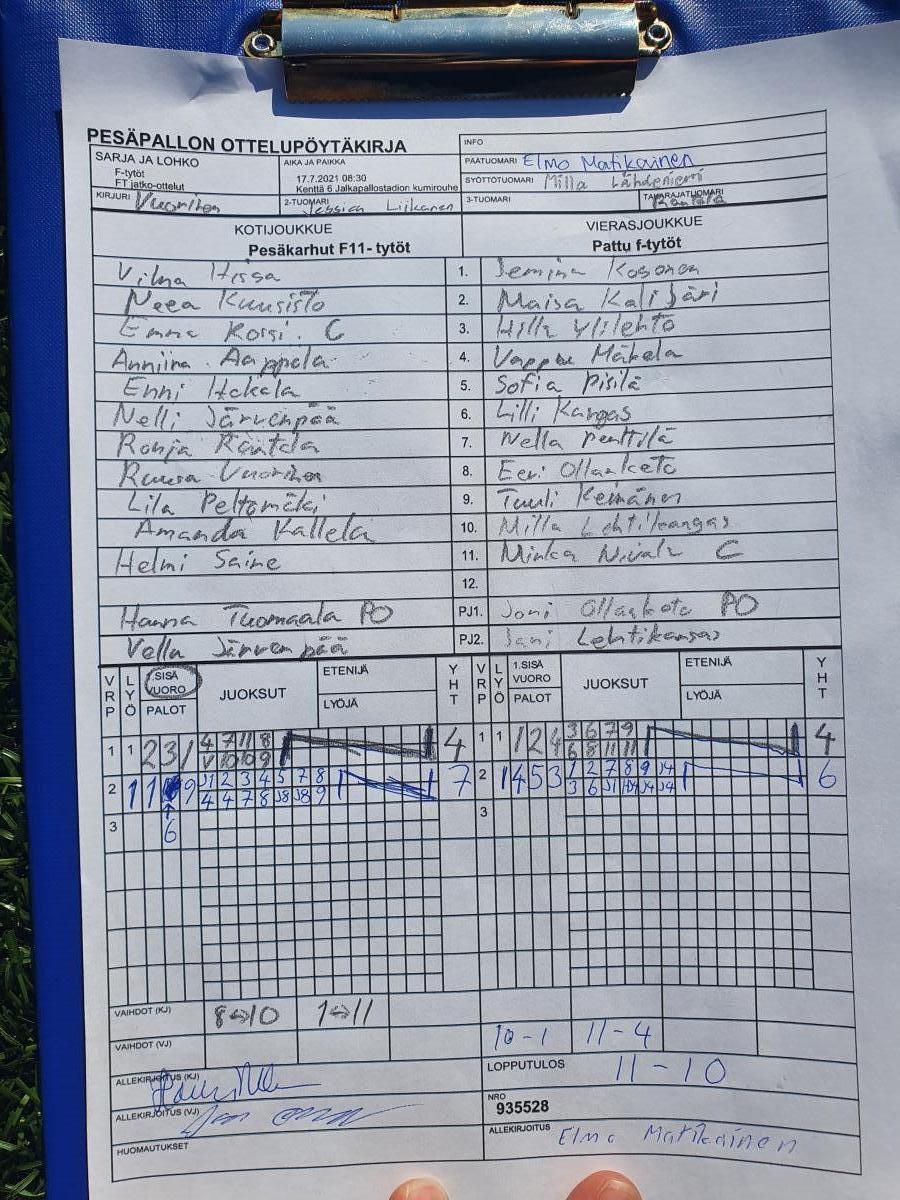 PESÄPALLON OTTELUPÖYTÄKIRJA
INFO
SARJA JA LOHKO
F-tytöt
FT jatko-ottelut
AIKA JA PAIKKA
17.7.2021 08:30
Kenttä 6 Jalkapallostadion kumirouhe
PÄÄTUOMARI Elmo Matikainen
SYÖTTÖTUOMARI Milla Lähdeniemi
KIRJURI Vuorinen
2-TUOMARI Jessica Liikanen
3-TUOMARI
TAKARAJATUOMARI Rantala
KOTIJOUKKUE
Pesäkarhut F11- tytöt
VIERASJOUKKUE
Pattu f-tytöt
Vilma Hissa 1. Jemina Kosonen
Neea Kuusisto 2. Maisa Kalijärvi
Emma Korsi. C 3. Hilla Ylilehto
Anniina Aappala 4. Vappu Mäkelä
Enni Hakala 5. Sofia Pisilä
Nelli Järvenpää 6. Lilli Kangas
Ronja Rantala 7. Nella Penttilä
Ruusa Vuorinen 8. Eevi Ollanketo
Lila Peltomäki 9. Tuuli Keinänen
Amanda Kallela 10. Milla Lehtikangas
Helmi Saine 11. Minka Nivala C
12.
Hanna Tuomaala PO PJ1. Joni Ollanketo PO
Vella Järvenpää PJ2. Jani Lehtikangas
VRP LYÖ SISÄ VUORO PALOT JUOKSUT ETENIJÄ LYÖJÄ YHT
VRP LYÖ 1.SISÄ VUORO PALOT JUOKSUT ETENIJÄ LYÖJÄ YHT
1 1 2 3 1 4 7 11 8 4 1 1 1 2 4 3 6 7 9 4
V 10 10 9 6 8 11 11
2 1 1 9 J1 2 3 4 5 7 8 7 2 1 4 5 3 1 2 7 8 9 J4 6
4 4 7 8 J8 J8 9 3 6 J1 J4 J4
3 6 3
VAIHDOT (KJ) 8⇔10 1⇔11
VAIHDOT (VJ) 10-1 11-4
ALLEKIRJOITUS (KJ)
LOPPUTULOS 11-10
ALLEKIRJOITUS (VJ)
NRO
935528
HUOMAUTUKSET
ALLEKIRJOITUS Elmo Matikainen